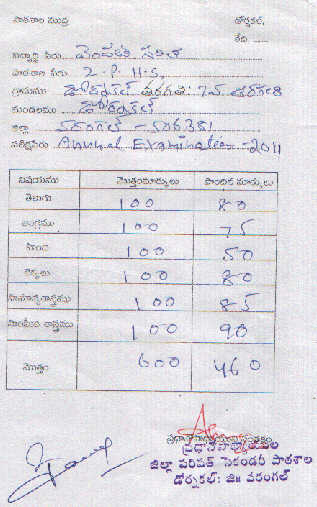 పాఠశాల ముద్ర డోర్నకల్,
తేది
విద్యార్థి పేరు
పాఠశాల పేరు Z.P.H.S,
గ్రామము డోర్నకల్ తరగతి: 7వ తరగతి
మండలము డోర్నకల్
జిల్లా వరంగల్ - 506381
పరీక్షపేరు Annual Examination - 2011
విషయము మొత్తంమార్కులు పొందిన మార్కులు
తెలుగు 100 80
ఆంగ్లము 100 75
హింది 100 50
లెక్కలు 100 80
సామాన్యశాస్త్రము 100 85
సాంఘీక శాస్త్రము 100 90
మొత్తం 600 460
ప్రధానోపాధ్యాయుల
జిల్లా పరిషత్ సెకండరీ పాఠశాల
డోర్నకల్: జిll వరంగల్